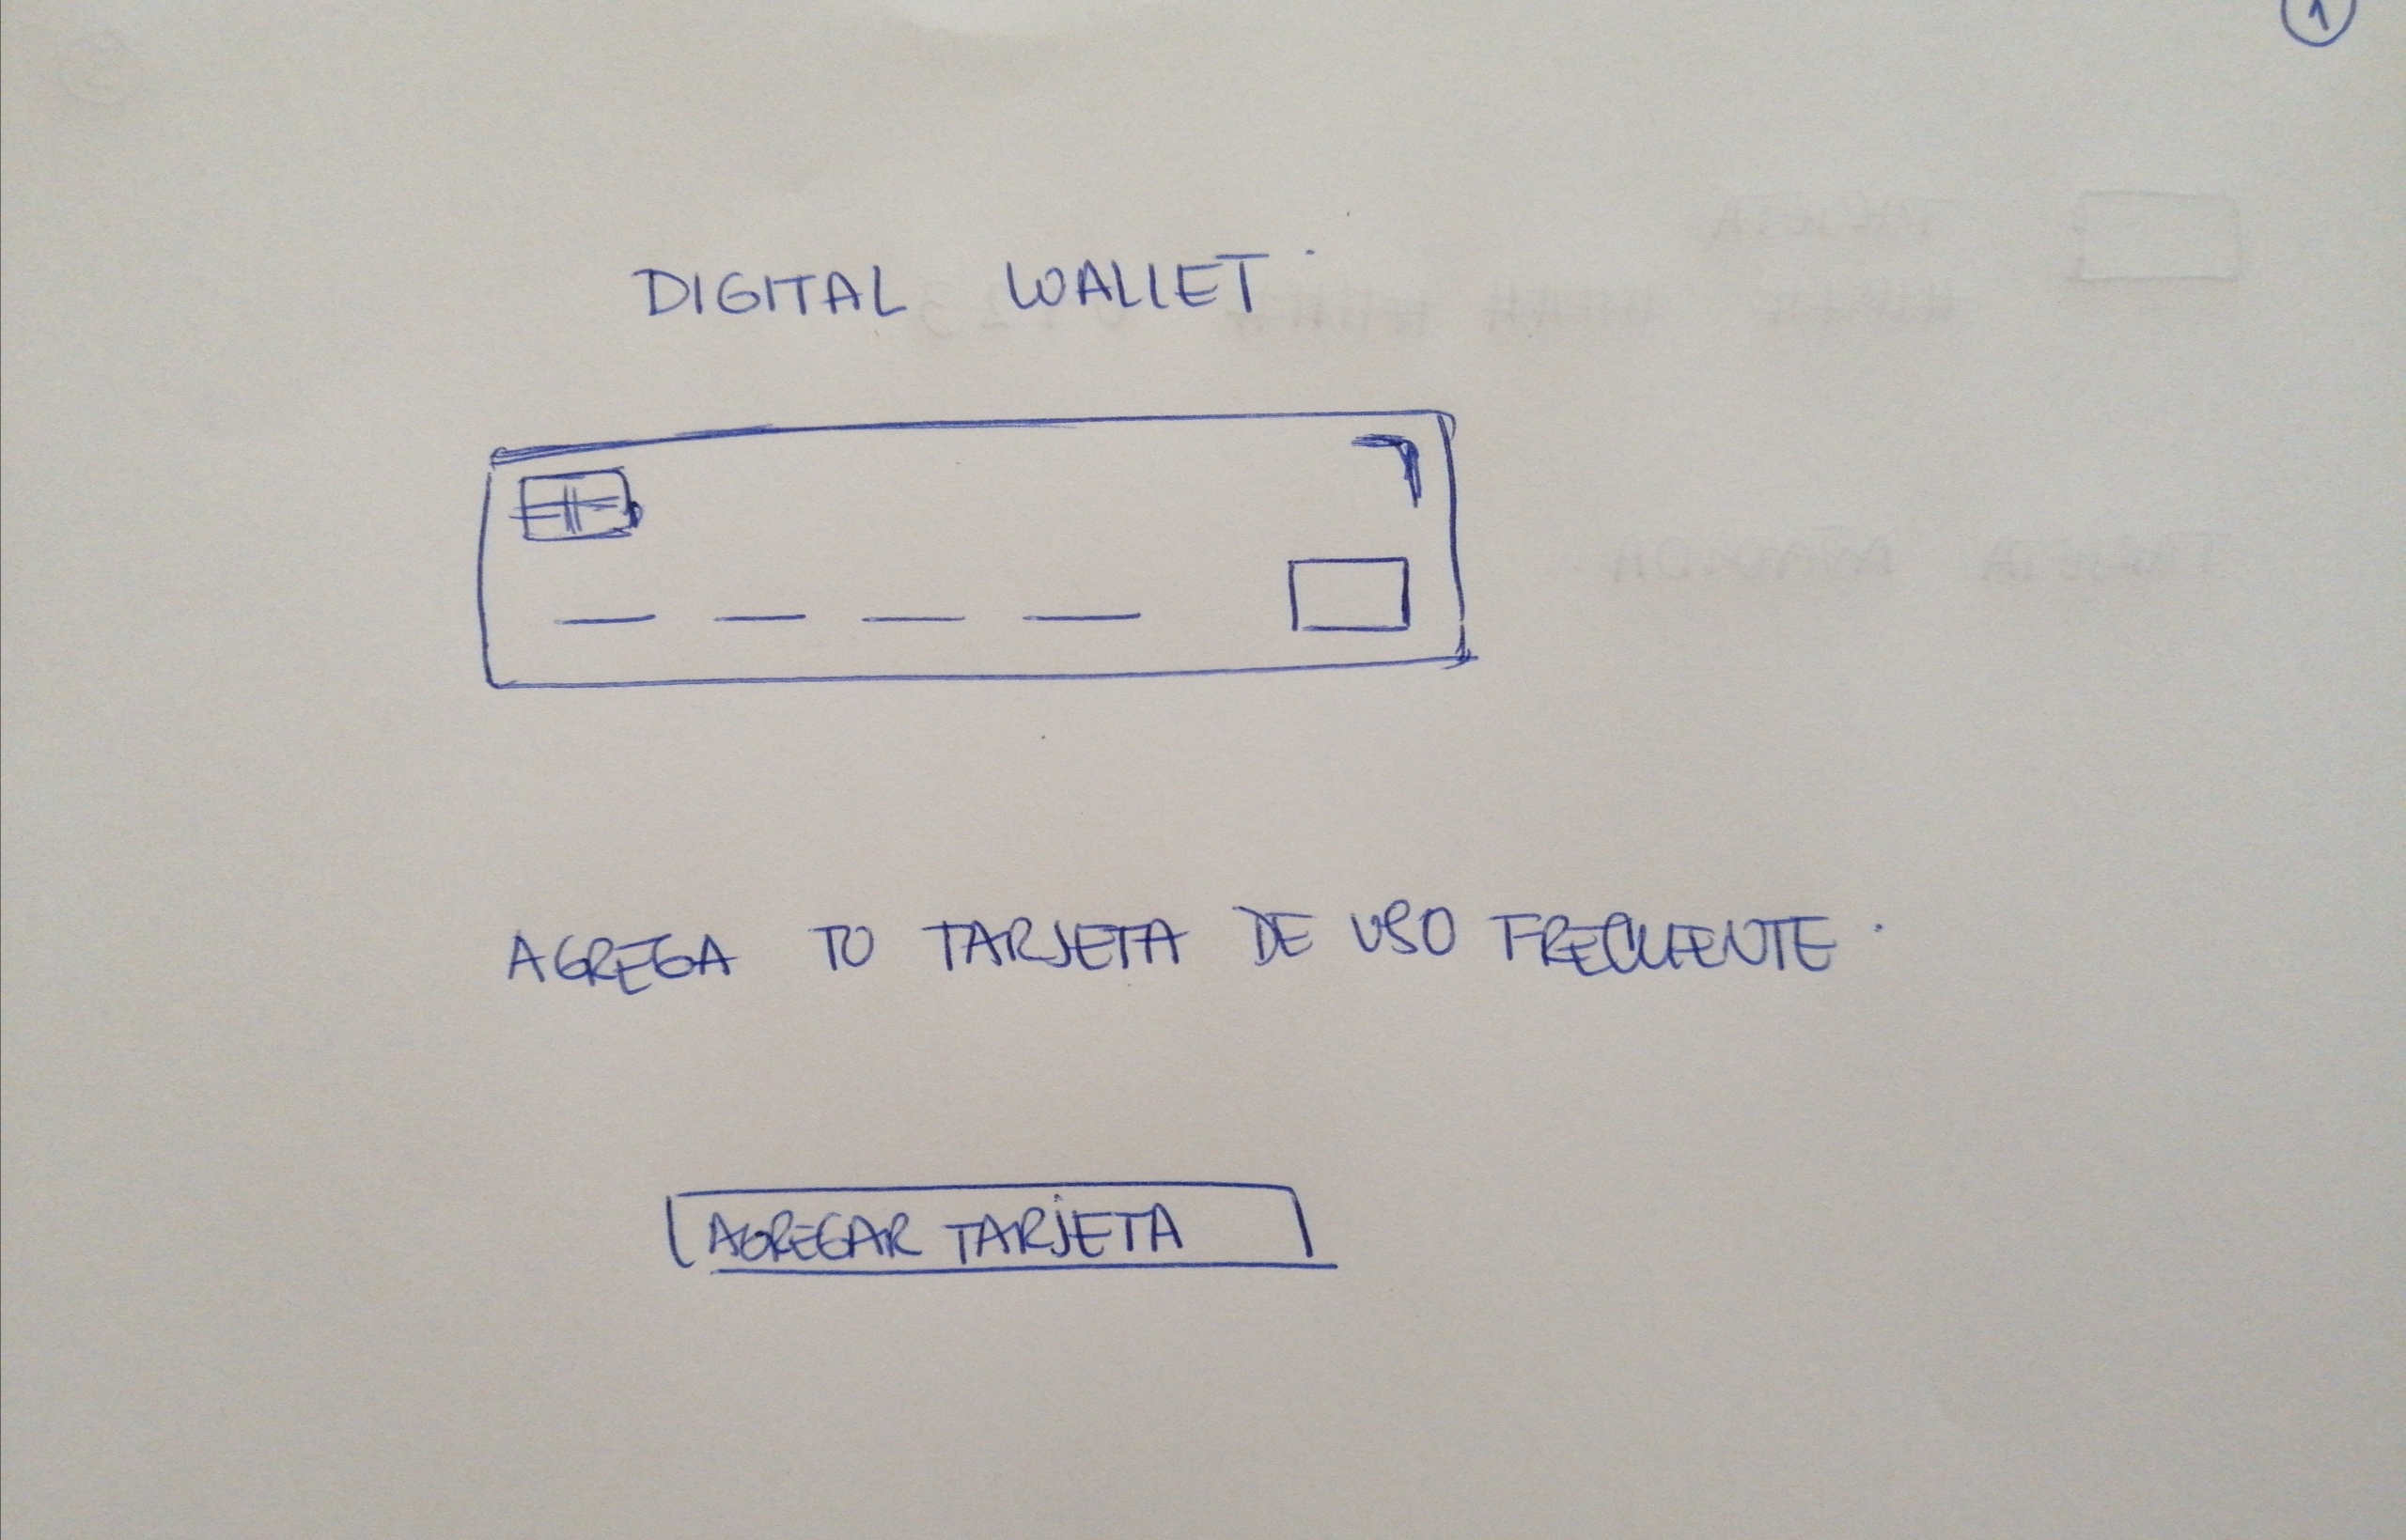 1
DIGITAL WALLET
AGREGA TU TARJETA DE USO FRECUENTE.
AGREGAR TARJETA